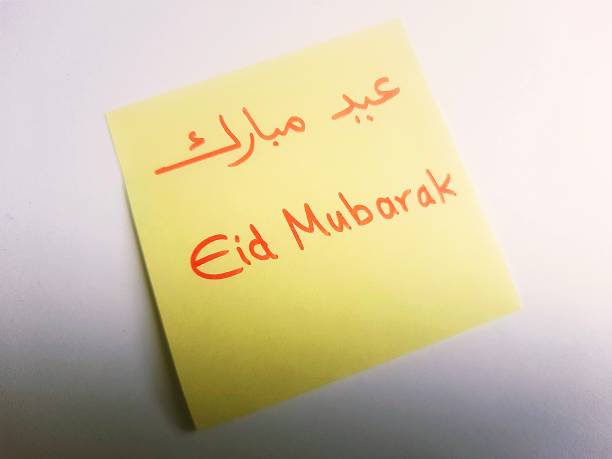 عيد مبارك
Eid Mubarak